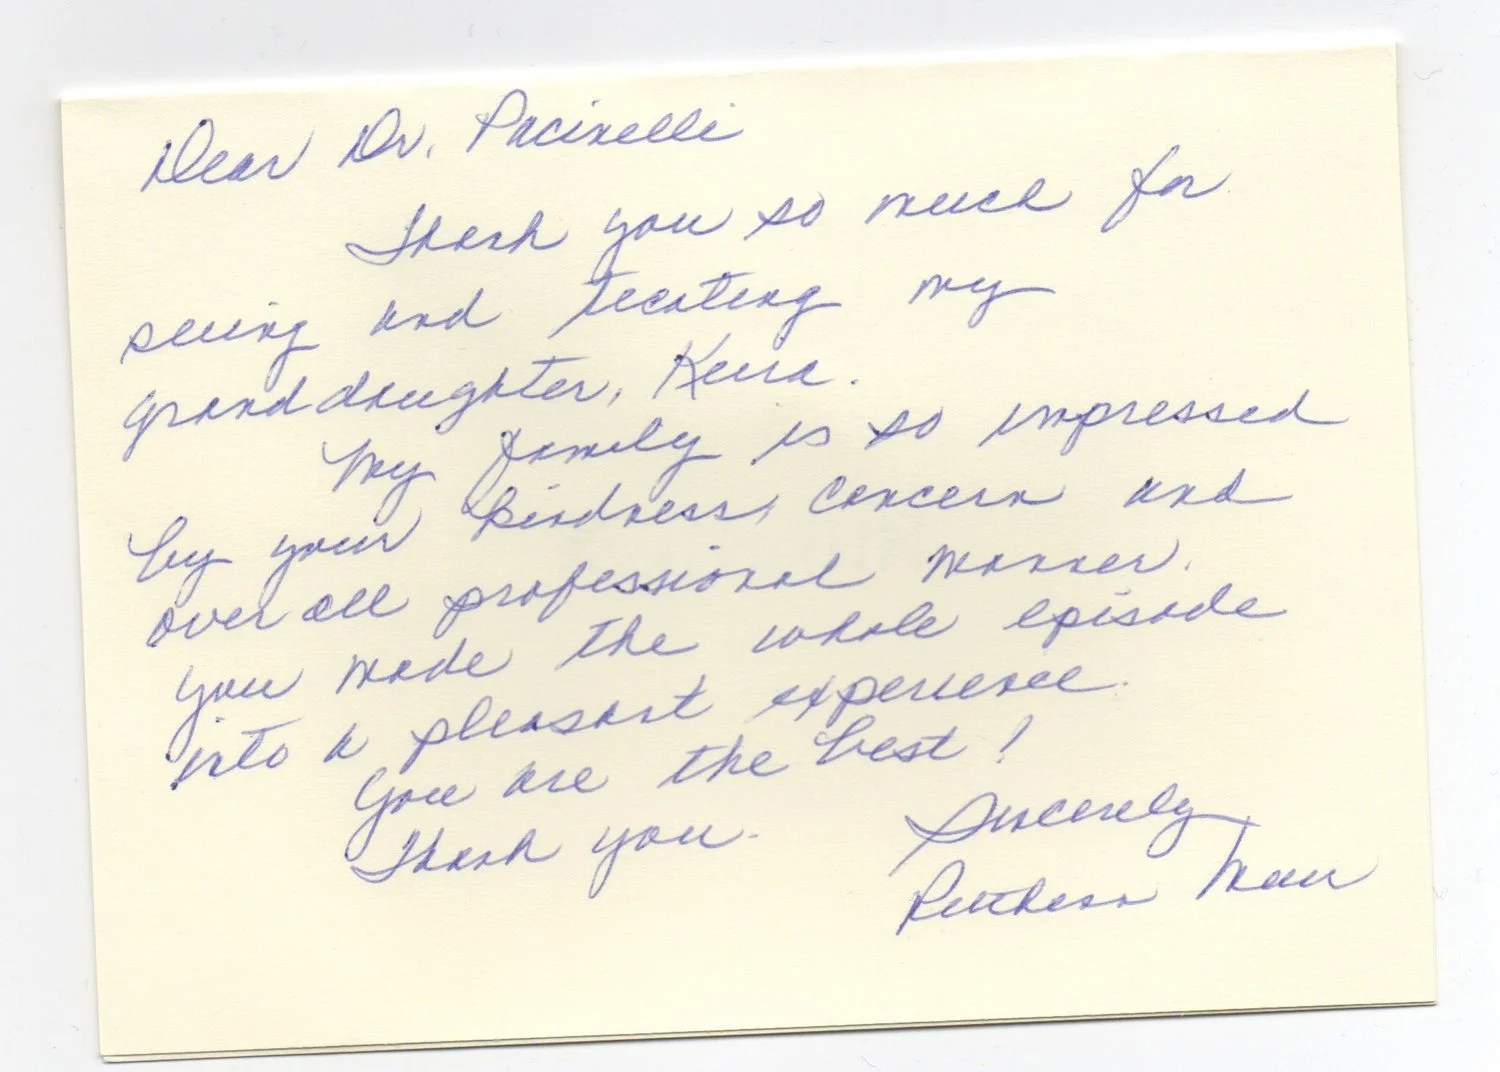 Dear Dr. Pacinelli
Thank you so much for
seeing and treating my
granddaughter, Keira.
My family is so impressed
by your kindness, concern and
over all professional manner.
You made the whole episode
into a pleasant experience.
You are the best!
Thank you.
Sincerely
Ruthann